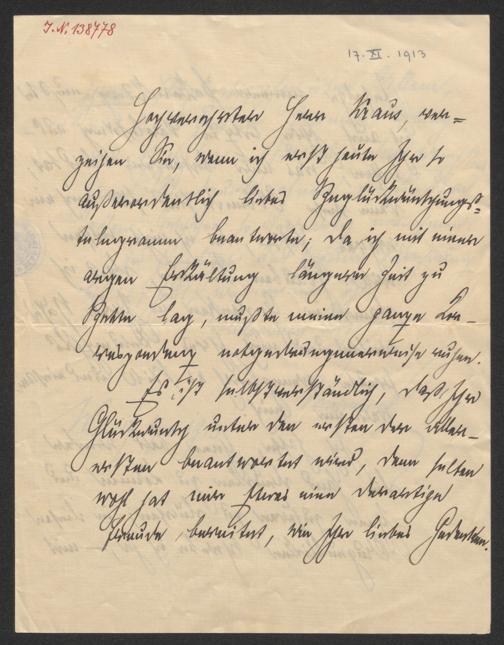 I.N. 138778
17. XI. 1913
Hochverehrter Herr Kraus, ver=
zeihen Sie, wenn ich erst heute Ihr so
außerordentlich liebes Beglückwünschungs=
telegramm beantworte; da ich mit einer
argen Erkältung längere Zeit zu
Bette lag, mußte meine ganze Kor=
respondenz notgedrungenerweise ruhen.
Es ist selbstverständlich, daß Ihr
Glückwunsch unter den ersten der aller=
ersten beantwortet wird, denn selten
wohl hat mir etwas eine derartige
Freude bereitet, wie Ihr liebes Gedenken.